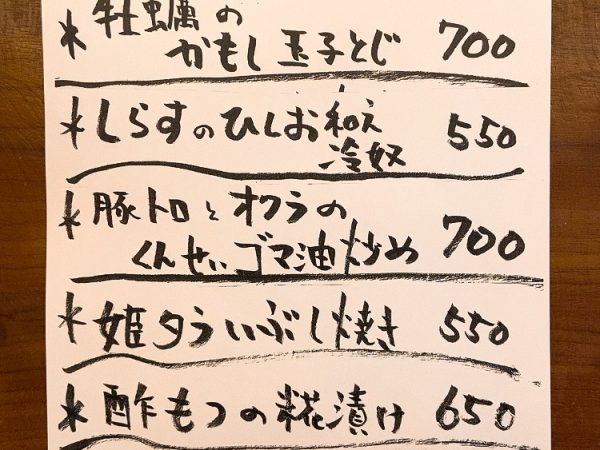 * 牡蠣の
かもし玉子とじ 700
* しらすのひしお和え
冷奴 550
* 豚トロとオクラの
くんせいゴマ油炒め 700
* 姫タラいぶし焼き 550
* 酢もつの糀漬け 650